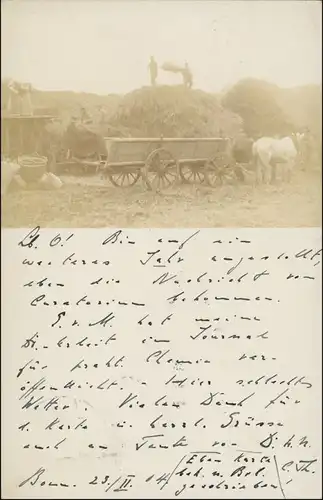 Lb. O! Bin auf ein
weiteres Jahr angestellt,
eben die Nachricht vom
Curatorium bekommen.
E. v. M. hat meine
Dr.-Arbeit im Journal
für prakt. Chemie ver-
öffentlicht. - Hier schlechtes
Wetter. Vielen Dank für
d. Karte u. herzl. Grüsse
auch an Tante von D. tr. N.
(Eben Karte
bek. u. Bel.
geschrieben) C. Th.
Bonn. 23./II. 04